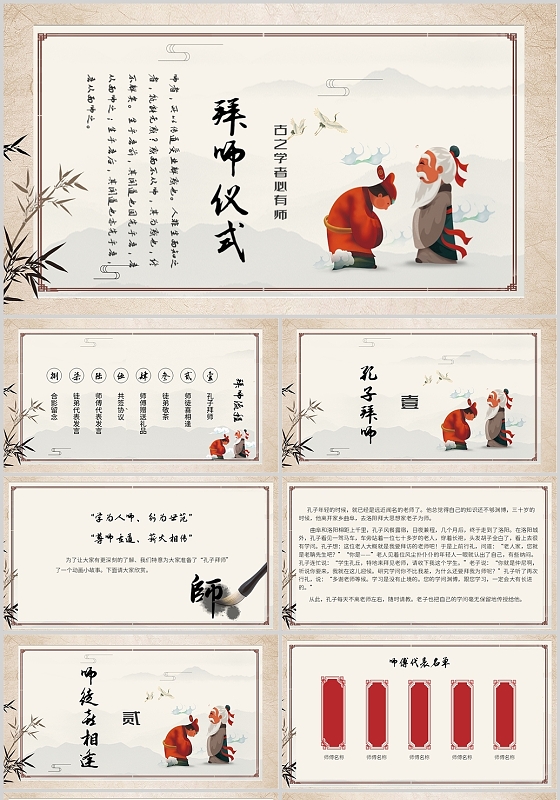 拜师仪式
古之学者必有师
师者,所以传道受业解惑也。人非生而知之
者,孰能无惑?惑而不从师,其为惑也,终
不解矣。生乎吾前,其闻道也固先乎吾,吾
从而师之;生乎吾后,其闻道也亦先乎吾,
吾从而师之。
拜师流程
壹
孔子拜师
贰
师徒喜相逢
叁
徒弟敬茶
肆
师傅赠送礼品
伍
共签协议
陆
师傅代表发言
柒
徒弟代表发言
捌
合影留念
孔子拜师
壹
“学为人师、行为世范”
“尊师重道、薪火相传”
为了让大家有更深刻的了解、我们特意为大家准备了“孔子拜师”
了一个动画小故事。下面请大家欣赏。
師
孔子年轻的时候,就已经是远近闻名的老师了。他总觉得自己的知识还不够渊博,三十岁的
时候,他离开家乡曲阜,去洛阳拜大思想家老子为师。
曲阜和洛阳相距上千里,孔子风餐露宿,日夜兼程,几个月后,终于走到了洛阳。在洛阳城
外,孔子看见一驾马车,车旁站着一位七十多岁的老人,穿着长袍,头发胡子全白了,看上去很
有学问。孔子想:这位老人大概就是我要拜访的老师吧!于是上前行礼,问道:“老人家,您就
是老聃先生吧?”“你是——”老人见着位风尘仆仆的年轻人一眼就认出了自己,有些纳闷。
孔子连忙说:“学生孔丘,特地来拜见老师,请收下我这个学生。”老子说:“你就是仲尼啊,
听说你要来,我就在这儿迎候。研究学问你不比我差,为什么还要拜我为师呢?”孔子听了再次
行礼,说:“多谢老师等候。学习是没有止境的。您的学问渊博,跟您学习,一定会大有长进
的。”
从此,孔子每天不离老师左右,随时请教。老子也把自己的学问毫无保留地传授给他。
师徒喜相逢
贰
师傅代表名单
师傅名称
师傅名称
师傅名称
师傅名称
师傅名称